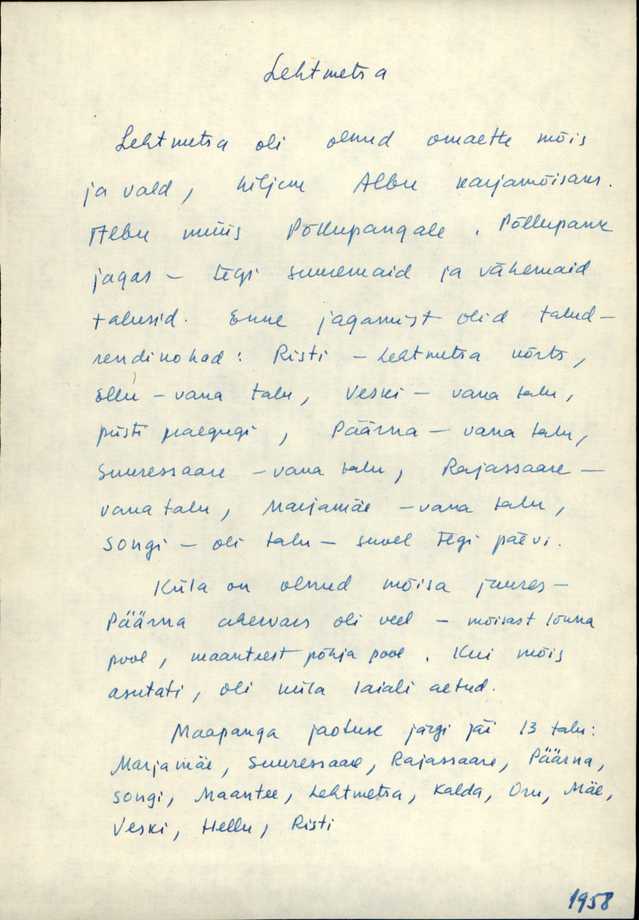 Lehtmetsa
Lehtmetsa oli olnud omaette mõis
ja vald, hiljem Albu karjamõisaks.
Albu müüs Põllupangale. Põllupank
jagas – tegi suuremaid ja vähemaid
talusid. Enne jagamist olid talud –
rendikohad: Risti – Lehtmetsa kõrts,
Ellu – vana talu, Veski – vana talu,
püsti praegugi, Päärna – vana talu,
Suuressaare – vana talu, Rajassaare –
vana talu, Marjamäe – vana talu,
Songi – oli talu – suvel tegi päevi.
Küla on olnud mõisa juures –
Päärna ahervars oli veel – mõisast lõuna
pool, maanteest põhja pool. Kui mõis
asutati, oli küla laiali aetud.
Maapanga jaotuse järgi jäi 13 talu:
Marjamäe, Suuressaare, Rajassaare, Päärna,
Songi, Maantee, Lehtmetsa, Kalda, Oru, Mäe,
Veski, Hellu, Risti
1958